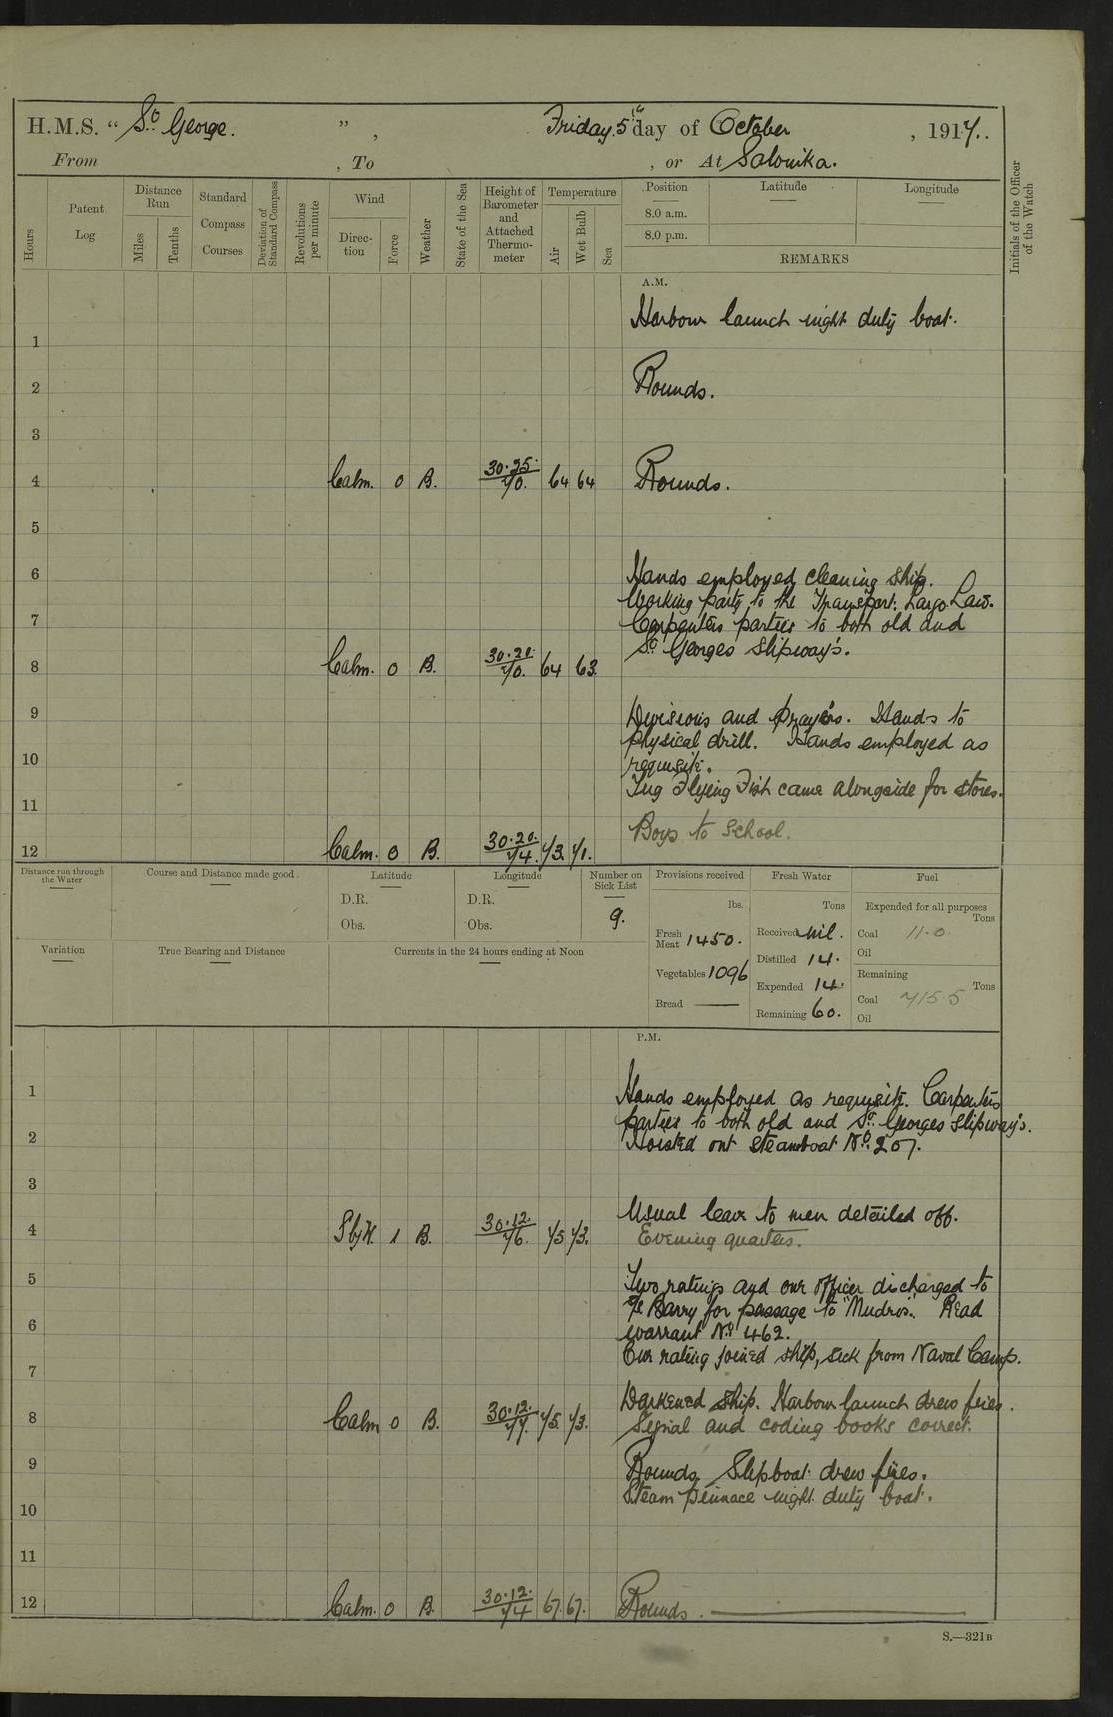 H.M.S. “ St. George. ” , Friday. 5th day of October , 1917..
From , To , or At Salonika.
Hours
Patent Log
Distance Run
Miles
Tenths
Standard Compass Courses
Deviation of Standard Compass
Revolutions per minute
Wind
Direc- tion
Force
Weather
State of the Sea
Height of Barometer and Attached Thermo- meter
Temperature
Air
Wet Bulb
Sea
Position Latitude Longitude
8.0 a.m.
8.0 p.m.
REMARKS
Initials of the Officer of the Watch
A.M.
Harbour launch night duty boat.
1
2 Rounds.
3
4 Calm. 0 B. 30.25. 70. 64 64 Rounds.
5
6 Hands employed cleaning ship.
Working party to the Transport: Largo Law.
7 Carpenters parties to both old and
St. Georges Slipway's.
8 Calm. 0 B. 30.20. 70. 64 63.
9 Divisions and prayers. Hands to
physical drill. Hands employed as
10 requisite.
Tug Flying Fish came alongside for stores.
11
Boys to School.
12 Calm. 0 B. 30.20. 74. 73. 71.
Distance run through the Water
Course and Distance made good
Latitude
D.R.
Obs.
Longitude
D.R.
Obs.
Number on Sick List
9.
Provisions received
lbs.
Fresh Meat 1450.
Vegetables 1096
Bread ——
Fresh Water
Tons
Received nil.
Distilled 14.
Expended 14.
Remaining 60.
Fuel
Expended for all purposes
Tons
Coal 11.0
Oil
Remaining
Tons
Coal 715.5
Oil
Variation
True Bearing and Distance
Currents in the 24 hours ending at Noon
P.M.
1 Hands employed as requisite. Carpenters
parties to both old and St. Georges Slipway's.
2 Hoisted out Steamboat No. 207.
3
Usual leave to men detailed off.
4 S by W. 1 B. 30.12. 76. 75 73. Evening quarters.
5 Two ratings and one officer discharged to
Barry for passage to "Mudros". Read
6 warrant No. 462.
One rating joined ship, sick from Naval Camp.
7
Darkened ship. Harbour launch drew fires.
8 Calm 0 B. 30.12. 77. 75. 73. Signal and coding books correct.
9 Rounds. Slipboat drew fires.
Steam pinnace night duty boat.
10
11
12 Calm. 0 B. 30.12. 74 67. 67. Rounds.
S.—321B